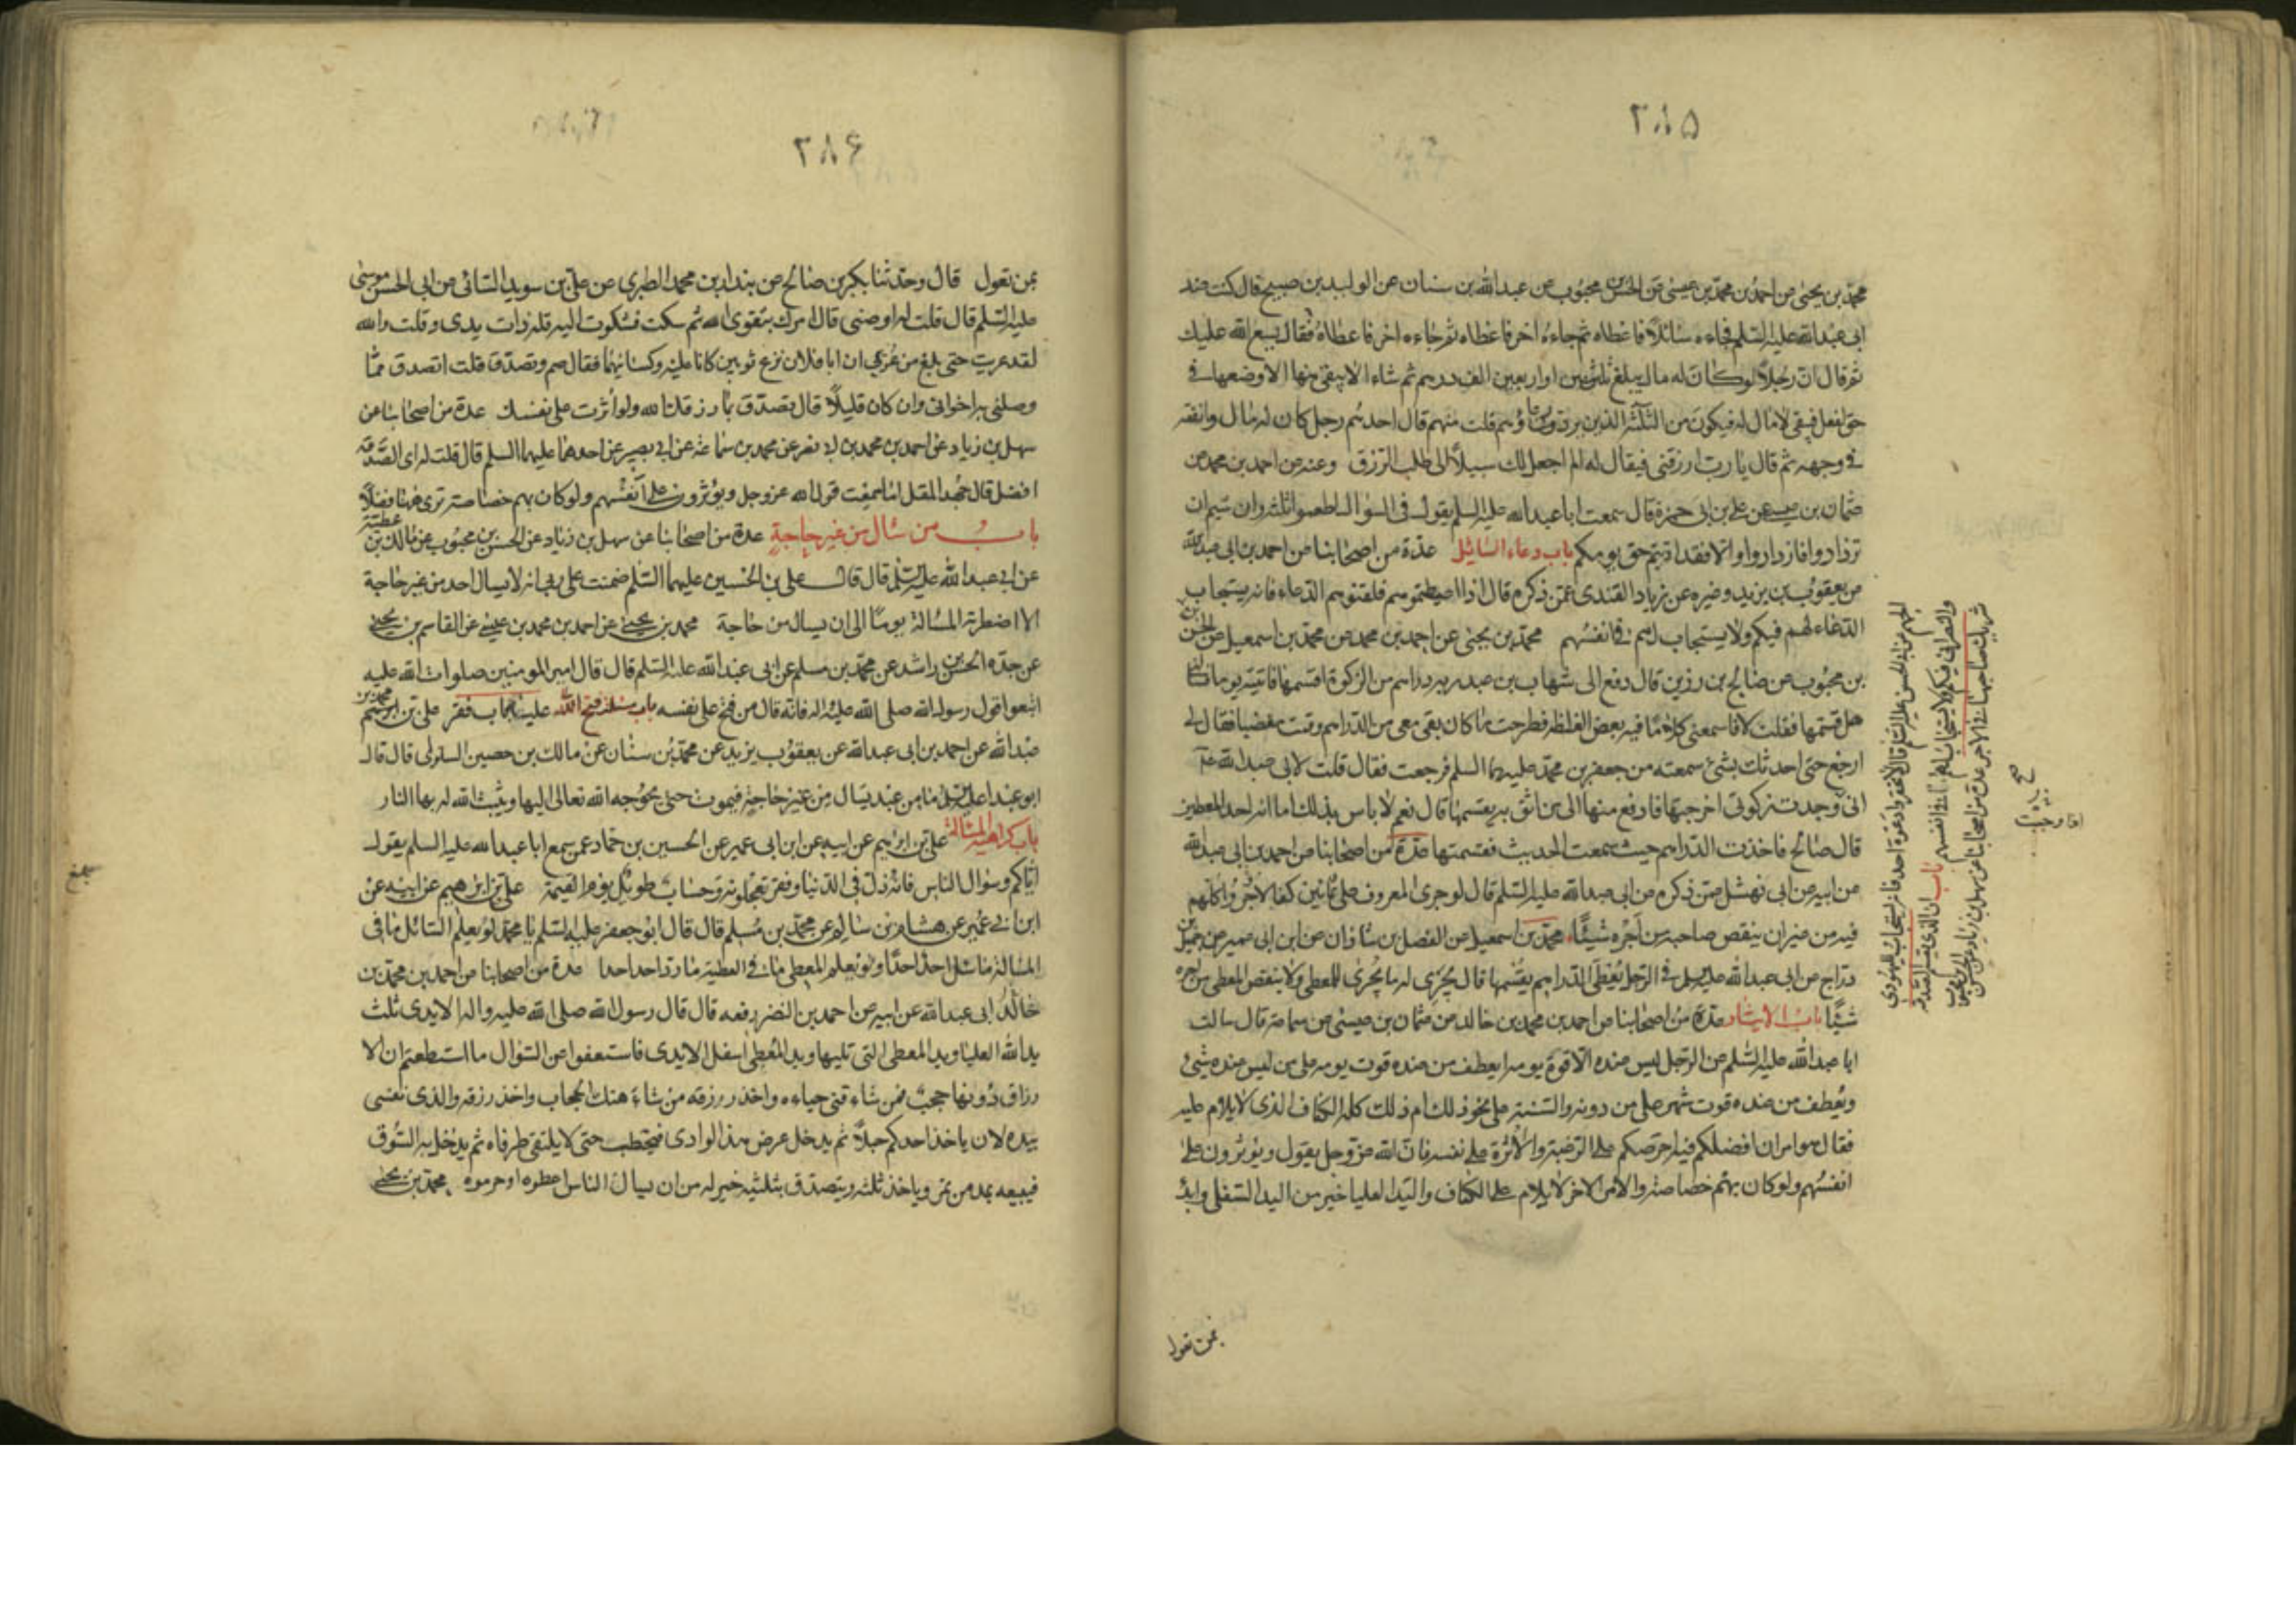 ٢٨٥
محمد بن يحيى عن احمد بن محمد بن عيسى عن الحسن بن محبوب عن عبد الله بن سنان عن الوليد بن صبيح قال كنت عند
ابى عبد الله عليه السلم فجاءه سائلا فاعطاه ثم جاءه اخر فاعطاه ثم جاءه اخر فاعطاه فقال يسع الله عليك
ثم قال ان رجلا لوكان له مال يبلغ ثلثين او اربعين الف درهم ثم شاء الا يبقى منها الا وضعها فى
حق لفعل فيبقى لا مال له فيكون من الثلثة الذين يرد دعاؤهم قلت منهم قال احدهم رجل كان له مال وانفقه
فى وجهه ثم قال يا رب ارزقنى فيقال له الم اجعل لك سبيلا الى طلب الرزق وعنه عن احمد بن محمد عن
عثمان بن عيسى عن على بن ابى حمزة قال سمعت ابا عبد الله عليه السلم يقول فى السؤال اطعموا ثلثه وان شيم ان
تزدادوا فازدادوا والا فقد اديتم حق يومكم باب دعاء السائل عدة من اصحابنا عن احمد بن ابى عبد الله
عن يعقوب بن يزيد وغيره عن زياد القندى عمن ذكره قال اذا اعطيتموهم فلقنوهم الدعاء فانه يستجاب
الدعاء لهم فيكم ولا يستجاب لهم فى انفسهم محمد بن يحيى عن احمد بن محمد عن محمد بن اسمعيل عن الحسن
بن محبوب عن صالح بن رزين قال دفع الى شهاب بن عبد ربه دراهم من الزكوة اقسمها فاتيته يوما فسالنى
هل قسمتها فقلت لا فاسمعنى كلاما فيه بعض الغلظه فطرحت ما كان بقى معى من الدراهم وقمت مغضبا فقال لى
ارجع حتى احدثك بشئ سمعته من جعفر بن محمد عليهما السلم فرجعت فقال قلت لابى عبد الله ع
انى وجدت زكوتى اخرجتها فادفع منها الى من اثق به يقسمها قال نعم لا باس بذلك اما انه احد المعطين
قال صالح فاخذت الدراهم حيث سمعت الحديث فقسمتها عدة من اصحابنا عن احمد بن ابى عبد الله
عن ابيه عن ابى نهشل عمن ذكره عن ابى عبد الله عليه السلم قال لو جرى المعروف على ثمانين كفا لاجروا كلهم
فيه من غير ان ينقص صاحبه من اجره شيئا محمد بن اسمعيل عن الفضل بن شاذان عن ابن ابى عمير عن جميل بن
دراج عن ابى عبد الله عليه السلم فى الرجل يعطى الدراهم يقسمها قال يجرى له ما يجرى للمعطى ولا ينقص المعطى من اجره
شيئا باب الايثار عدة من اصحابنا عن احمد بن محمد بن خالد عن عثمان بن عيسى عن سماعة قال سالت
ابا عبد الله عليه السلم عن الرجل ليس عنده الا قوة يومه ايعطف من عنده قوت يومه على من ليس عنده شيئ
ويعطف من عنده قوت شهر على من دونه والسنة على نحو ذلك ام ذلك كله الكفاف الذى لا يلام عليه
فقال هو امران افضلكم فيه احرصكم على الرغبة والاثرة على نفسه فان الله عز وجل يقول ويؤثرون على
انفسهم ولو كان بهم خصاصة والامر الاخر لا يلام على الكفاف واليد العليا خير من اليد السفلى وابدأ
بمن تعول
المهم عن ابى الحسن عليه السلم قال لا تحقروا دعوة احد فانه يستجاب لليهودى
والنصرانى فيكم ولا يستجاب لهم فى انفسهم باب ان الذى يقسم الصدقة
شريك صاحبها فى الاجر عدة من اصحابنا عن سهل بن زياد عن الحسن
صح
٢٨۶
بمن تعول قال وحدثنا بكر بن صالح عن بندار بن محمد الطبرى عن على بن سويد السائى عن ابى الحسن موسى
عليه السلم قال قلت له اوصنى قال امرك بتقوى الله ثم سكت فشكوت اليه قلة ذات يدى وقلت والله
لقد عريت حتى بلغ من عريى ان ابا فلان نزع ثوبين كانا عليه وكسانيهما فقال صم وتصدق قلت اتصدق مما
وصلنى به اخوانى وان كان قليلا قال تصدق بما رزقك الله ولو اثرت على نفسك عدة من اصحابنا عن
سهل بن زياد عن احمد بن محمد بن ابى نصر عن محمد بن سماعة عن ابى بصير عن احدهما عليهما السلم قال قلت له اى الصدقة
افضل قال جهد المقل اما سمعت قول الله عز وجل ويؤثرون على انفسهم ولو كان بهم خصاصة ترى هيهنا فضلا
باب من سال من غير حاجة عدة من اصحابنا عن سهل بن زياد عن الحسن بن محبوب عن مالك بن عطية
عن ابى عبد الله عليه السلم قال قال على بن الحسين عليهما السلم ضمنت على ربى انه لا يسال احد من غير حاجة
الا اضطرته المسالة يوما الى ان يسال من حاجة محمد بن يحيى عن احمد بن محمد بن عيسى عن القاسم بن يحيى
عن جده الحسن بن راشد عن محمد بن مسلم عن ابى عبد الله عليه السلم قال قال امير المومنين صلوات الله عليه
اتبعوا قول رسول الله صلى الله عليه واله فانه قال من فتح على نفسه باب مسئلة فتح الله عليه باب فقر على بن ابرهيم محمد بن
عبد الله عن احمد بن ابى عبد الله عن يعقوب بن يزيد عن محمد بن سنان عن مالك بن حصين السلولى قال قال
ابو عبد الله عليه السلم ما من عبد يسال من غير حاجة فيموت حتى يحوجه الله تعالى اليها ويثبت الله له بها النار
باب كراهية المسالة على بن ابرهيم عن ابيه عن ابن ابى عمير عن الحسين بن حماد عمن سمع ابا عبد الله عليه السلم يقول
اياكم وسؤال الناس فانه ذل فى الدنيا وفقر تعجلونه وحساب طويل يوم القيمة على بن ابرهيم عن ابيه عن
ابن ابى عمير عن هشام بن سالم عن محمد بن مسلم قال قال ابو جعفر عليه السلم يا محمد لو يعلم السائل ما فى
المسالة ما سئل احد احدا ولو يعلم المعطى ما فى العطية ما رد احد احدا عدة من اصحابنا عن احمد بن محمد بن
خالد ابى عبد الله عن ابيه عن احمد بن النضر رفعه قال قال رسول الله صلى الله عليه واله الايدى ثلث
يد الله العليا ويد المعطى التى تليها ويد المعطى اسفل الايدى فاستعفوا عن السؤال ما استطعتم ان الا
رزاق دونها حجب فمن شاء قنى حياءه واخذ رزقه من شاء هتك الحجاب واخذ رزقه والذى نفسى
بيده لان ياخذ احدكم حبلا ثم يدخل عرض هذا الوادى فيحتطب حتى لا يلتقى طرفاه ثم يدخل به السوق
فيبيعه بمد من تمر وياخذ ثلثه ويتصدق بثلثيه خير له من ان يسال الناس اعطوه او حرموه محمد بن يحيى